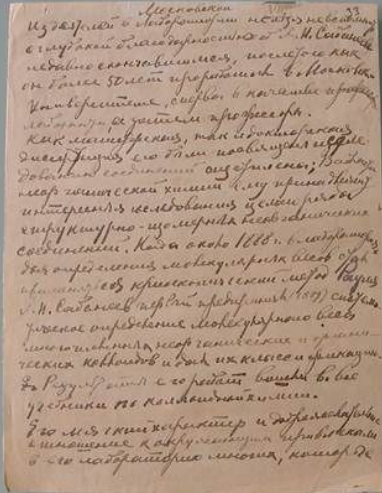 Московской
33
Из деятелей в лаборатории нельзя не вспомнить
с глубокой благодарностью об А. Н. Сабанееве
недавно скончавшимся, после того как
он более 50 лет проработал в Московск.
Университете, сперва в качестве
лаборанта, а затем профессора.
Как магистерская, так и докторская
диссертация его были посвящены иссле-
дованию соединений ацетилена; В области
неорганической химии ему принадлежит
интересныя исследования целого ряда
структурно-изомерных неорганических
соединений. Когда около 1888 г. в лаборатории
для определения молекулярных весов стал
криоскопический метод Рауля
А. Н. Сабанеев первый предпринял система-
тическое определение молекулярного веса
многочисленных неорганических и органи-
ческих коллоидов и дал их классификацию.
Результаты его работ вошли во все
учебники по коллоидной химии.
Его мягкий характер и доброжелательное
отношение к окружающим привлекали
в его лабораторию многих, которые